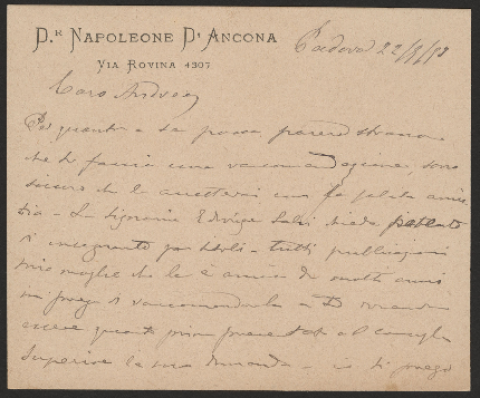 D.R NAPOLEONE D'ANCONA
VIA ROVINA 4307
Padova 22/8/93
Caro Andrea
Per quanto a te possa parere strano
che ti faccia una raccomandazione, sono
sicuro che l'accetterai con la solita amici
zia - La Signorina Edvige Salvi chiede
d'insegnante per titoli - tutti pubblicazioni
mia moglie che le è amica da molti anni
mi prega di raccomandarla a Te
essere quanto prima presentata al consiglio
Superiore la sua domanda - io ti prego